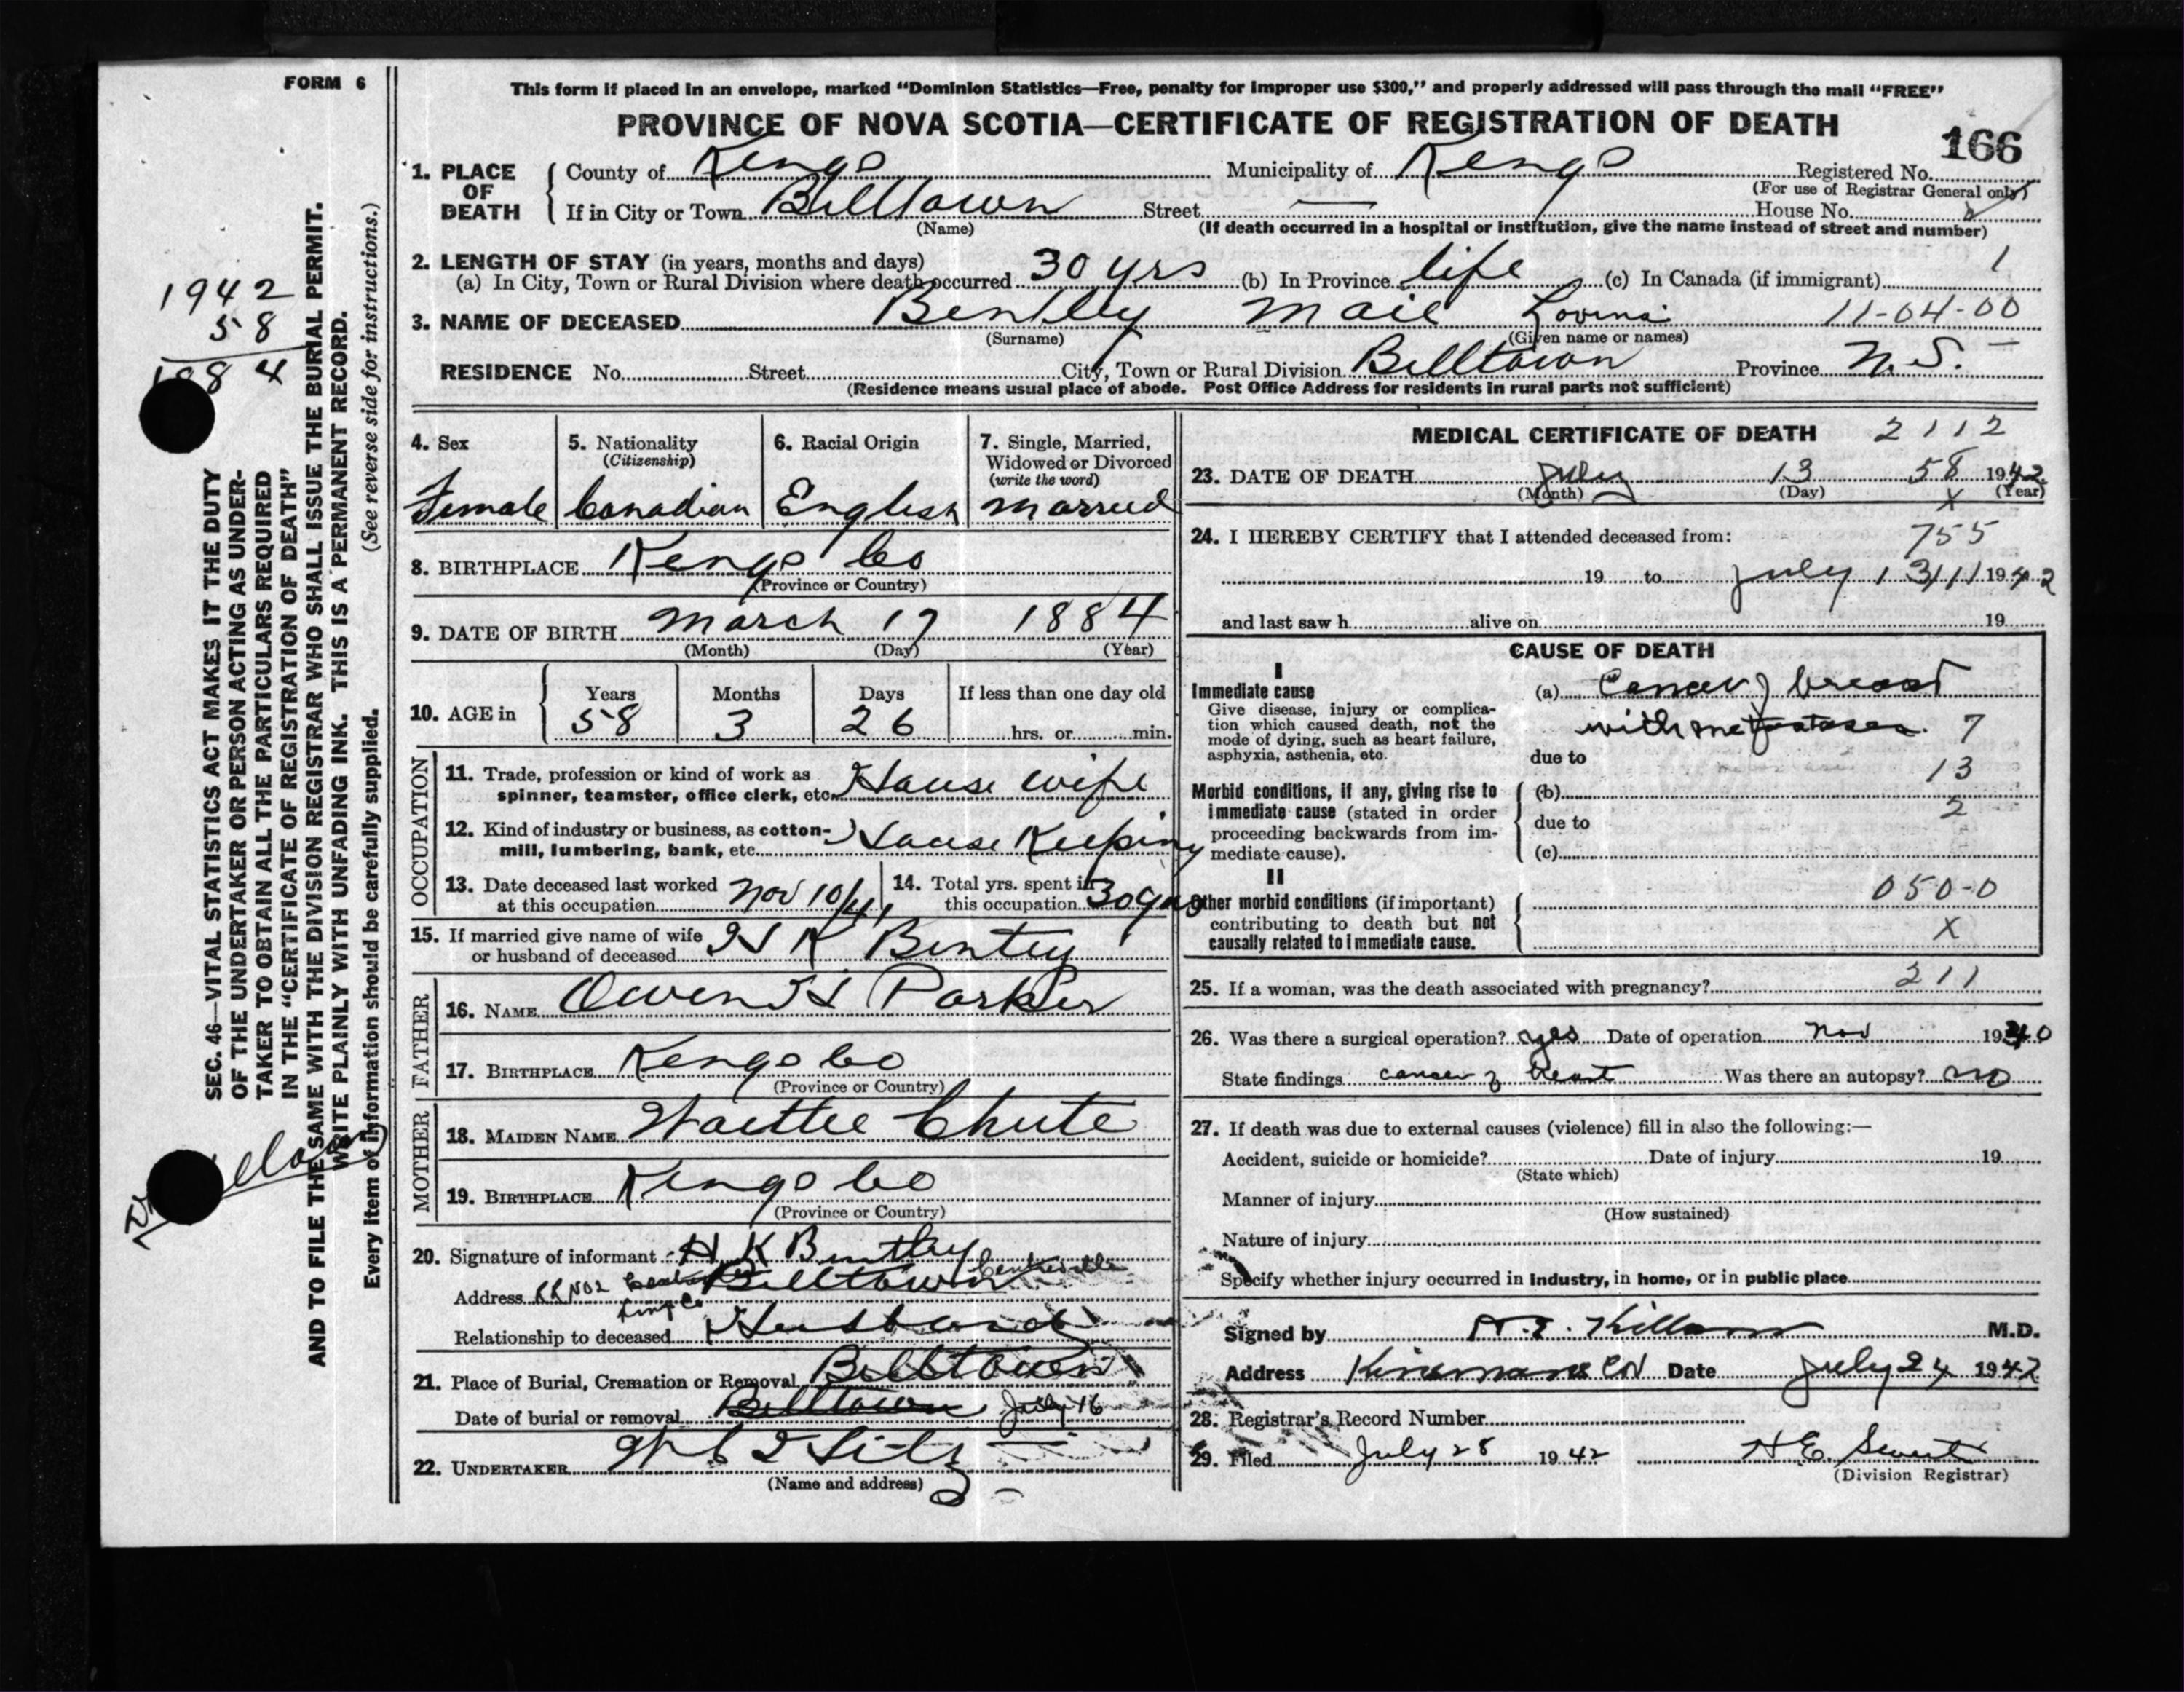 FORM 6
This form if placed in an envelope, marked "Dominion Statistics—Free, penalty for improper use $300," and properly addressed will pass through the mail "FREE"
PROVINCE OF NOVA SCOTIA—CERTIFICATE OF REGISTRATION OF DEATH
166
1. PLACE OF DEATH
County of Kings Municipality of Kings Registered No.
(For use of Registrar General only)
If in City or Town Billtown Street — House No.
(Name) (If death occurred in a hospital or institution, give the name instead of street and number)
2. LENGTH OF STAY (in years, months and days)
(a) In City, Town or Rural Division where death occurred 30 yrs (b) In Province life (c) In Canada (if immigrant) 1
3. NAME OF DECEASED Bentley Maie Lovina 11-04-00
(Surname) (Given name or names)
RESIDENCE No. Street City, Town or Rural Division Billtown Province N.S.
(Residence means usual place of abode. Post Office Address for residents in rural parts not sufficient)
4. Sex
Female
5. Nationality
(Citizenship)
Canadian
6. Racial Origin
English
7. Single, Married, Widowed or Divorced
(write the word)
Married
8. BIRTHPLACE Kings Co
(Province or Country)
9. DATE OF BIRTH March 17 1884
(Month) (Day) (Year)
10. AGE in
Years Months Days If less than one day old
58 3 26 hrs. or min.
OCCUPATION
11. Trade, profession or kind of work as
spinner, teamster, office clerk, etc. House wife
12. Kind of industry or business, as cotton-
mill, lumbering, bank, etc. House Keeping
13. Date deceased last worked
at this occupation Nov 10/41
14. Total yrs. spent in
this occupation 30 yrs
15. If married give name of wife
or husband of deceased H K Bentley
FATHER
16. NAME Owen H Parker
17. BIRTHPLACE Kings Co
(Province or Country)
MOTHER
18. MAIDEN NAME Chute
19. BIRTHPLACE Kings Co
(Province or Country)
20. Signature of informant H K Bentley
Address RR No 2 Billtown Centreville
Kings Co
Relationship to deceased Husband
21. Place of Burial, Cremation or Removal Billtown
Date of burial or removal Billtown July 16
22. UNDERTAKER
(Name and address)
MEDICAL CERTIFICATE OF DEATH 2112
23. DATE OF DEATH July 13 58 1942
(Month) (Day) (Year)
x
24. I HEREBY CERTIFY that I attended deceased from:
755
19 to July 13 1942
and last saw h alive on 19
CAUSE OF DEATH
I
Immediate cause
Give disease, injury or complica-
tion which caused death, not the
mode of dying, such as heart failure,
asphyxia, asthenia, etc.
(a) Cancer of breast
with metastases. 7
due to
13
Morbid conditions, if any, giving rise to
immediate cause (stated in order
proceeding backwards from im-
mediate cause).
(b)
2
due to
(c)
II
Other morbid conditions (if important)
contributing to death but not
causally related to immediate cause.
050-0
X
25. If a woman, was the death associated with pregnancy? 211
26. Was there a surgical operation? yes Date of operation Nov 1940
State findings cancer of breast Was there an autopsy? no
27. If death was due to external causes (violence) fill in also the following:—
Accident, suicide or homicide? Date of injury 19
(State which)
Manner of injury
(How sustained)
Nature of injury
Specify whether injury occurred in industry, in home, or in public place
Signed by Killam M.D.
Address Date July 24 1942
28. Registrar's Record Number
29. Filed July 28 1942 H E
(Division Registrar)
1942
58
1884
SEC. 46—VITAL STATISTICS ACT MAKES IT THE DUTY
OF THE UNDERTAKER OR PERSON ACTING AS UNDER-
TAKER TO OBTAIN ALL THE PARTICULARS REQUIRED
IN THE "CERTIFICATE OF REGISTRATION OF DEATH"
AND TO FILE THE SAME WITH THE DIVISION REGISTRAR WHO SHALL ISSUE THE BURIAL PERMIT.
WRITE PLAINLY WITH UNFADING INK. THIS IS A PERMANENT RECORD.
Every item of information should be carefully supplied. (See reverse side for instructions.)